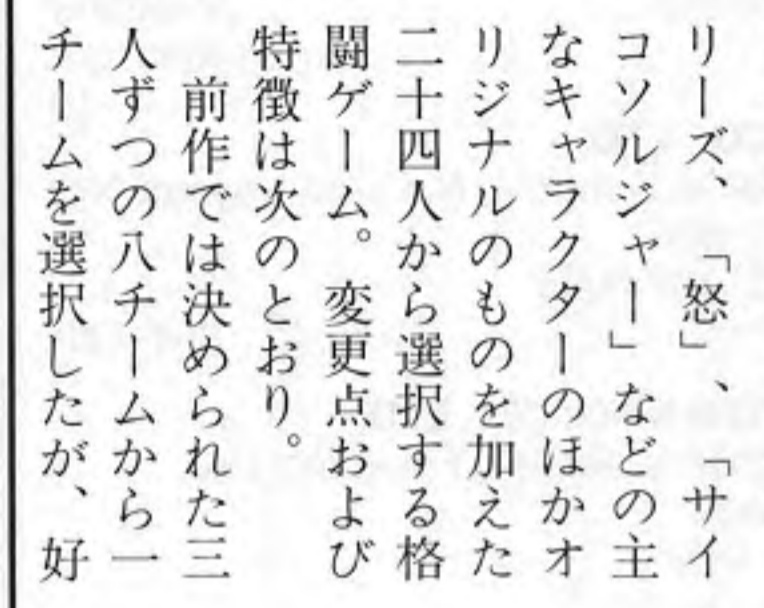 リーズ、「怒」、「サイ
コソルジャー」などの主
なキャラクターのほかオ
リジナルのものを加えた
二十四人から選択する格
闘ゲーム。変更点および
特徴は次のとおり。
　前作では決められた三
人ずつの八チームから一
チームを選択したが、好